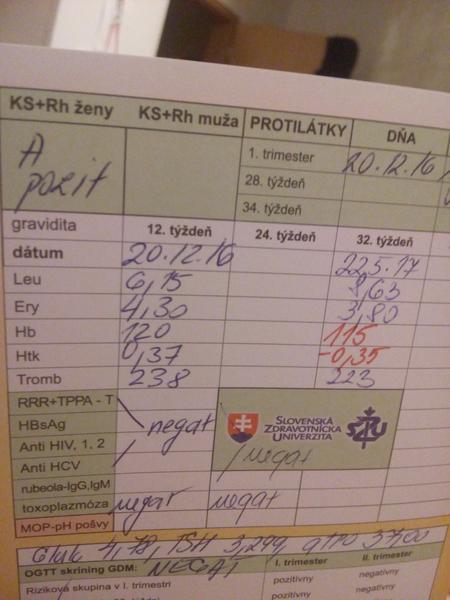 KS+Rh ženy KS+Rh muža PROTILÁTKY DŇA
A pozit
1. trimester 20.12.16
28. týždeň
34. týždeň
gravidita 12. týždeň 24. týždeň 32. týždeň
dátum 20.12.16 22.5.17
Leu 6,15 8,63
Ery 4,30 3,80
Hb 120 115
Htk 0,37 -0,35
Tromb 238 223
RRR+TPPA - T
HBsAg negat
SLOVENSKÁ ZDRAVOTNÍCKA UNIVERZITA SZU
Anti HIV, 1, 2
Anti HCV negat
rubeola-IgG,IgM
toxoplazmóza negat negat
MOP-pH pošvy
Gluk 4,78, TSH 3,299,
OGTT skríning GDM: NEGAT I. trimester II. trimester
Riziková skupina v I. trimestri pozitívny negatívny
pozitívny negatívny